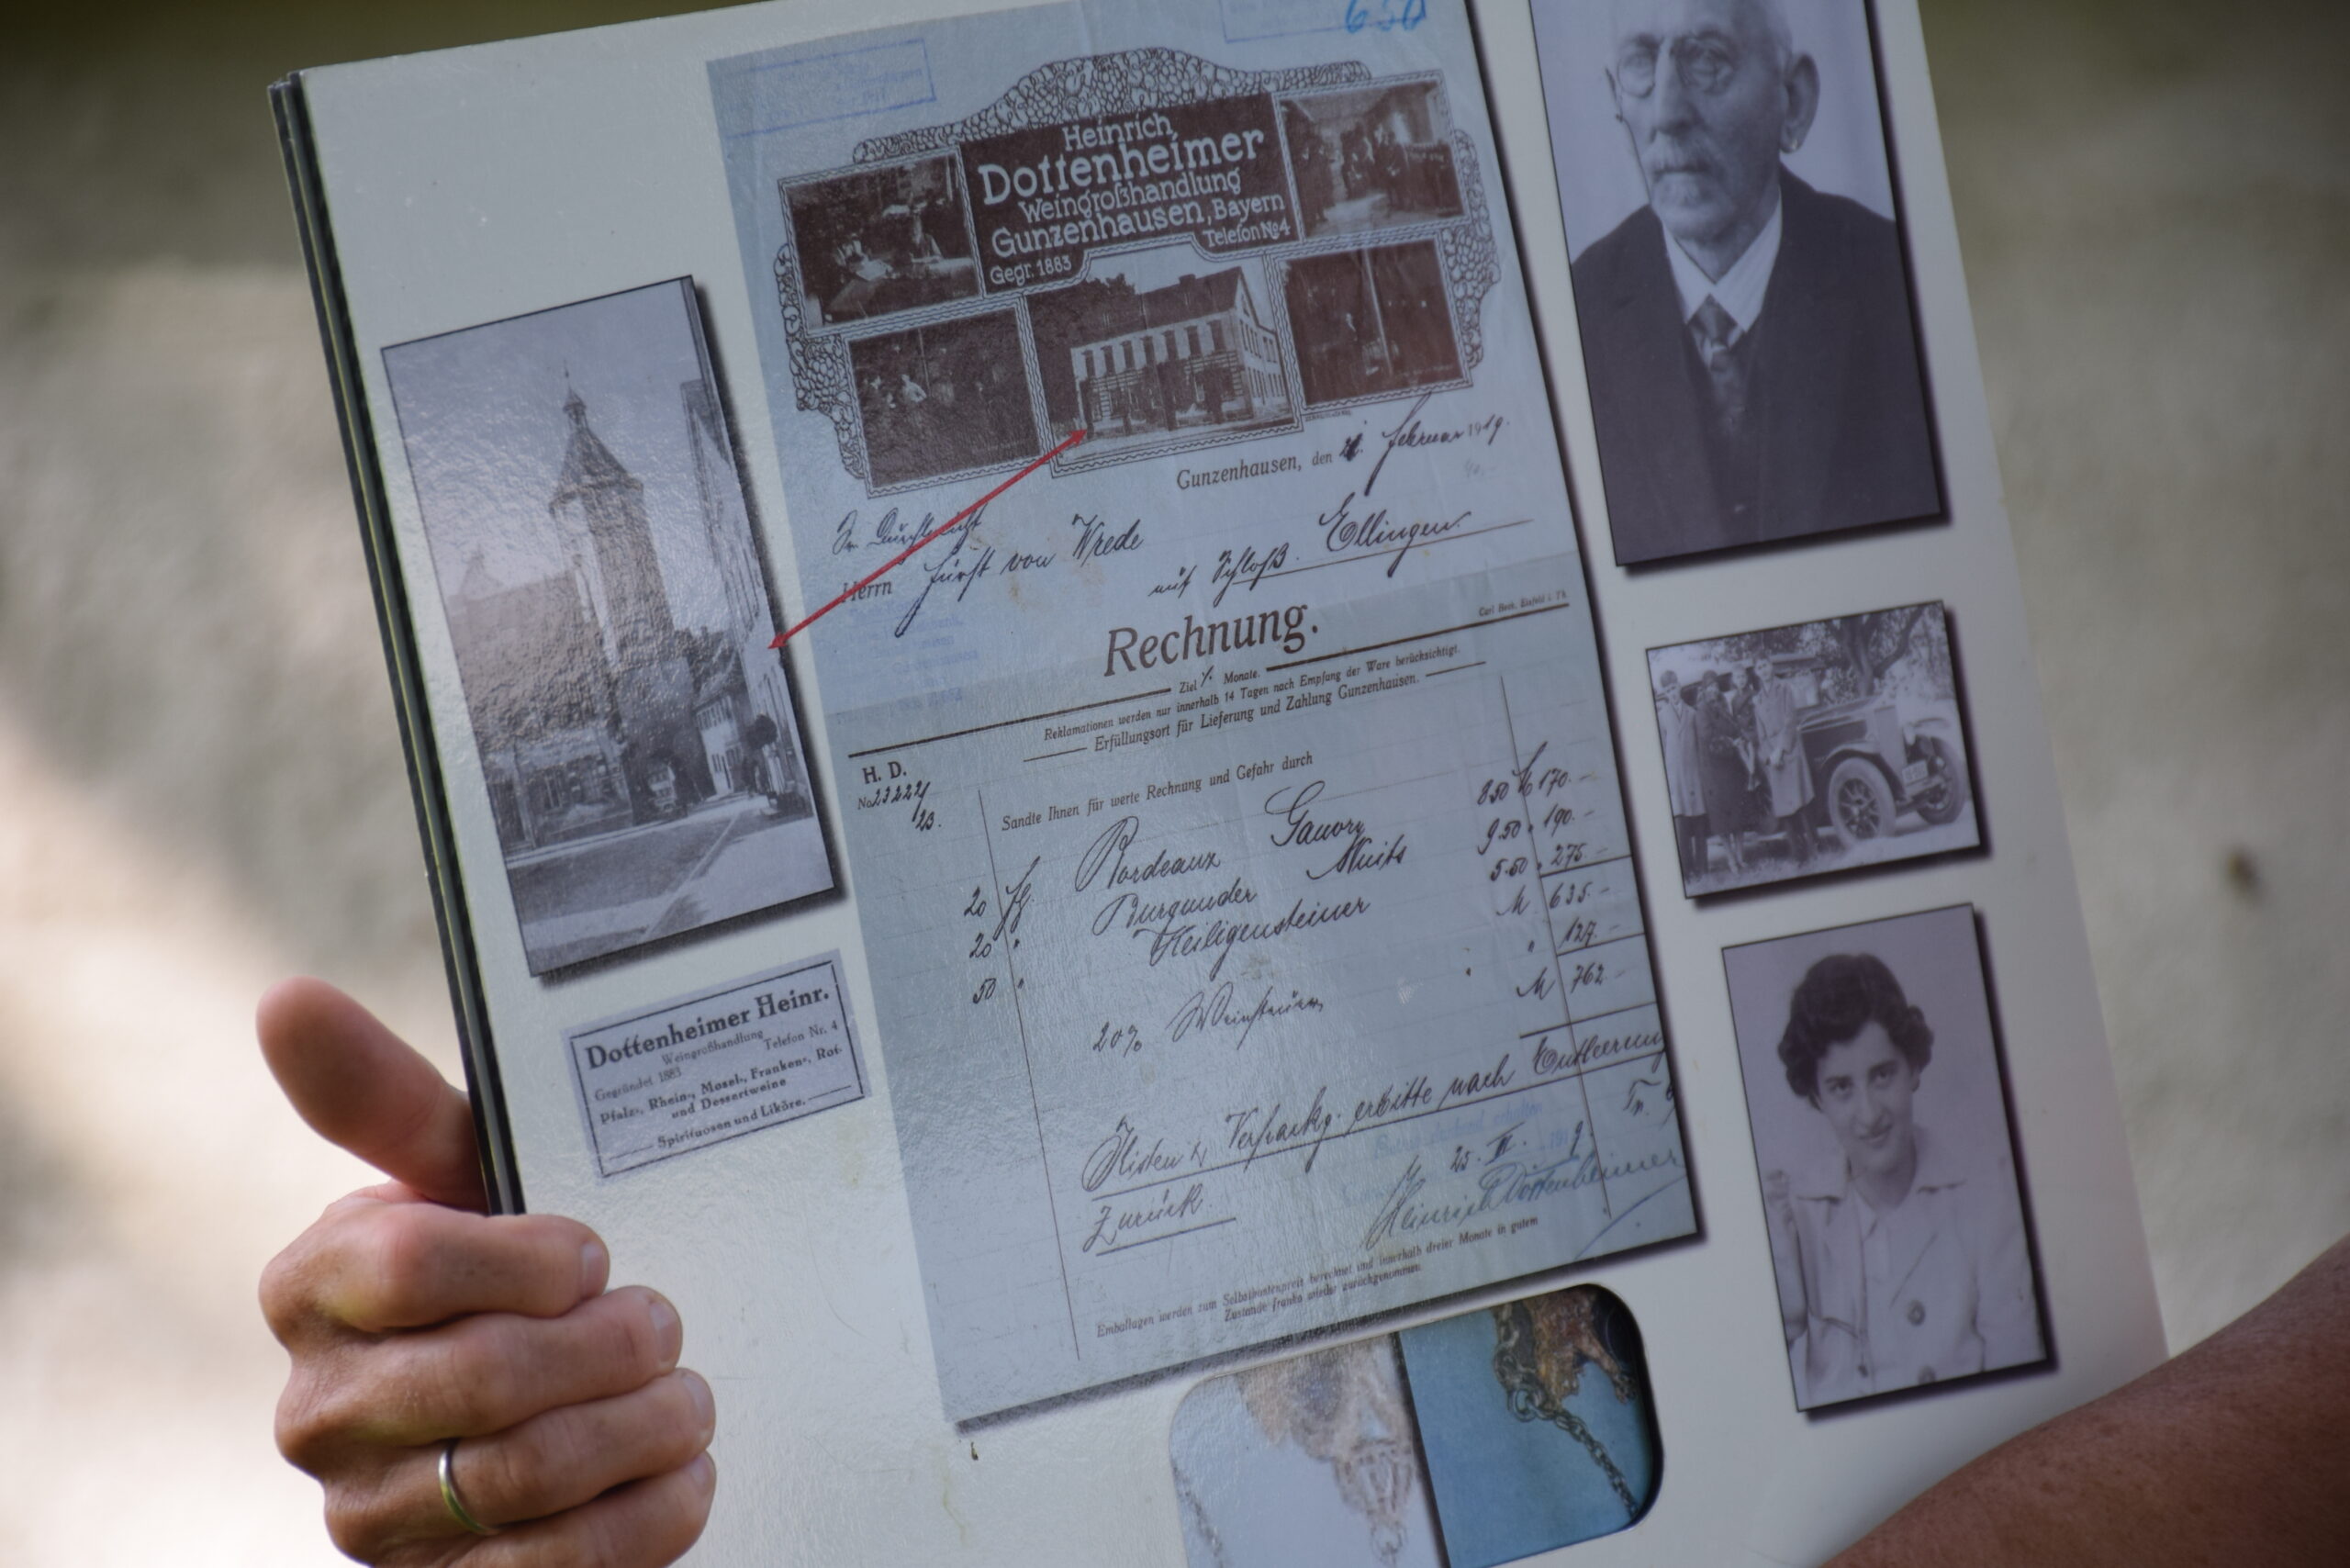 650
Heinrich
Dottenheimer
Weingroßhandlung
Gunzenhausen, Bayern
Telefon No 4
Gegr. 1883
Gunzenhausen, den 21. Februar 1919.
Sr. Durchlaucht
Herrn Fürst von Wrede
auf Schloß Ellingen.
Rechnung.
Ziel Monate.
Reklamationen werden nur innerhalb 14 Tagen nach Empfang der Ware berücksichtigt.
Erfüllungsort für Lieferung und Zahlung Gunzenhausen.
H. D.
No 23222/
23.
Sandte Ihnen für werte Rechnung und Gefahr durch
20 Fl. Bordeaux 8.50 M 170.-
20 " Burgunder Nuits 9.50 " 190.-
50 " Heiligensteiner 5.50 " 275.-
M 635.-
20% Weinsteuer " 127.-
M 762.-
Kisten & Verpackg. erbitte nach Entleerung
zurück.
25. II. 1919.
Heinrich Dottenheimer
Emballagen werden zum Selbstkostenpreis berechnet und innerhalb dreier Monate in gutem
Zustande franko wieder zurückgenommen.
Dottenheimer Heinr.
Weingroßhandlung
Gegründet 1883 Telefon Nr. 4
Pfalz-, Rhein-, Mosel-, Franken-, Rot-
und Dessertweine
Spirituosen und Liköre.